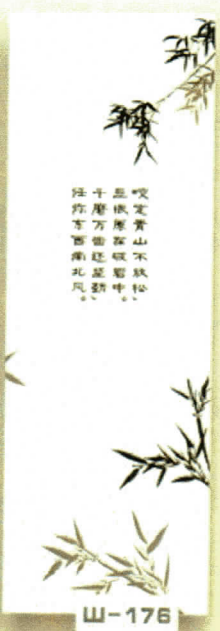 咬定青山不放松，
原在破岩中。
千磨万击还坚劲，
任你东西南北风。
Ш-176